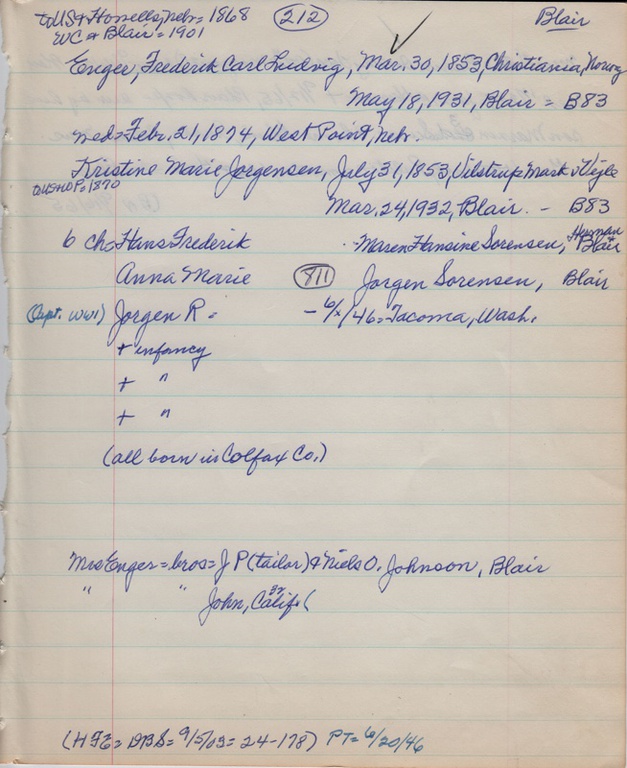 to US & Howells, Nebr = 1868 (212) Blair
WC & Blair = 1901
Enger, Frederik Carl Ludvig, Mar. 30, 1853, Christiania, Norway
May 18, 1931, Blair = B83
wed = Febr. 21, 1874, West Point, Nebr.
Kristine Marie Jorgensen, July 31, 1853, Vilstrup Mark v Vejle
to US & D.P. 1870
Mar. 24, 1932, Blair. - B83
6 ch. Hans Frederik Maren Hansine Sorensen, Herman Blair
Anna Marie (811) Jorgen Sorensen, Blair
(Capt. WW1) Jorgen R = - 6/x/46 = Tacoma, Wash.
+ infancy
+ "
+ "
(all born in Colfax Co.)
Mrs Enger = bros = J P (tailor) & Niels O. Johnson, Blair
" " John, Calif. (
(HFE = DBS = 9/5/03 = 24-178) PT = 6/20/46